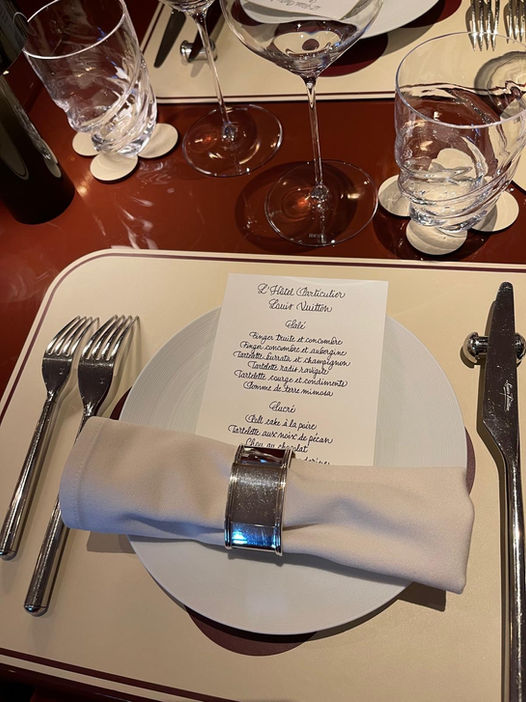 L'Hôtel Particulier
Louis Vuitton
Salé
Finger truite et concombre
Finger concombre et aubergine
Tartelette burrata et champignon
Tartelette radis ravigote
Tartelette courge et condiments
Pomme de terre mimosa
Sucré
Salt cake à la poire
Tartelette aux noix de pécan
Chou au chocolat